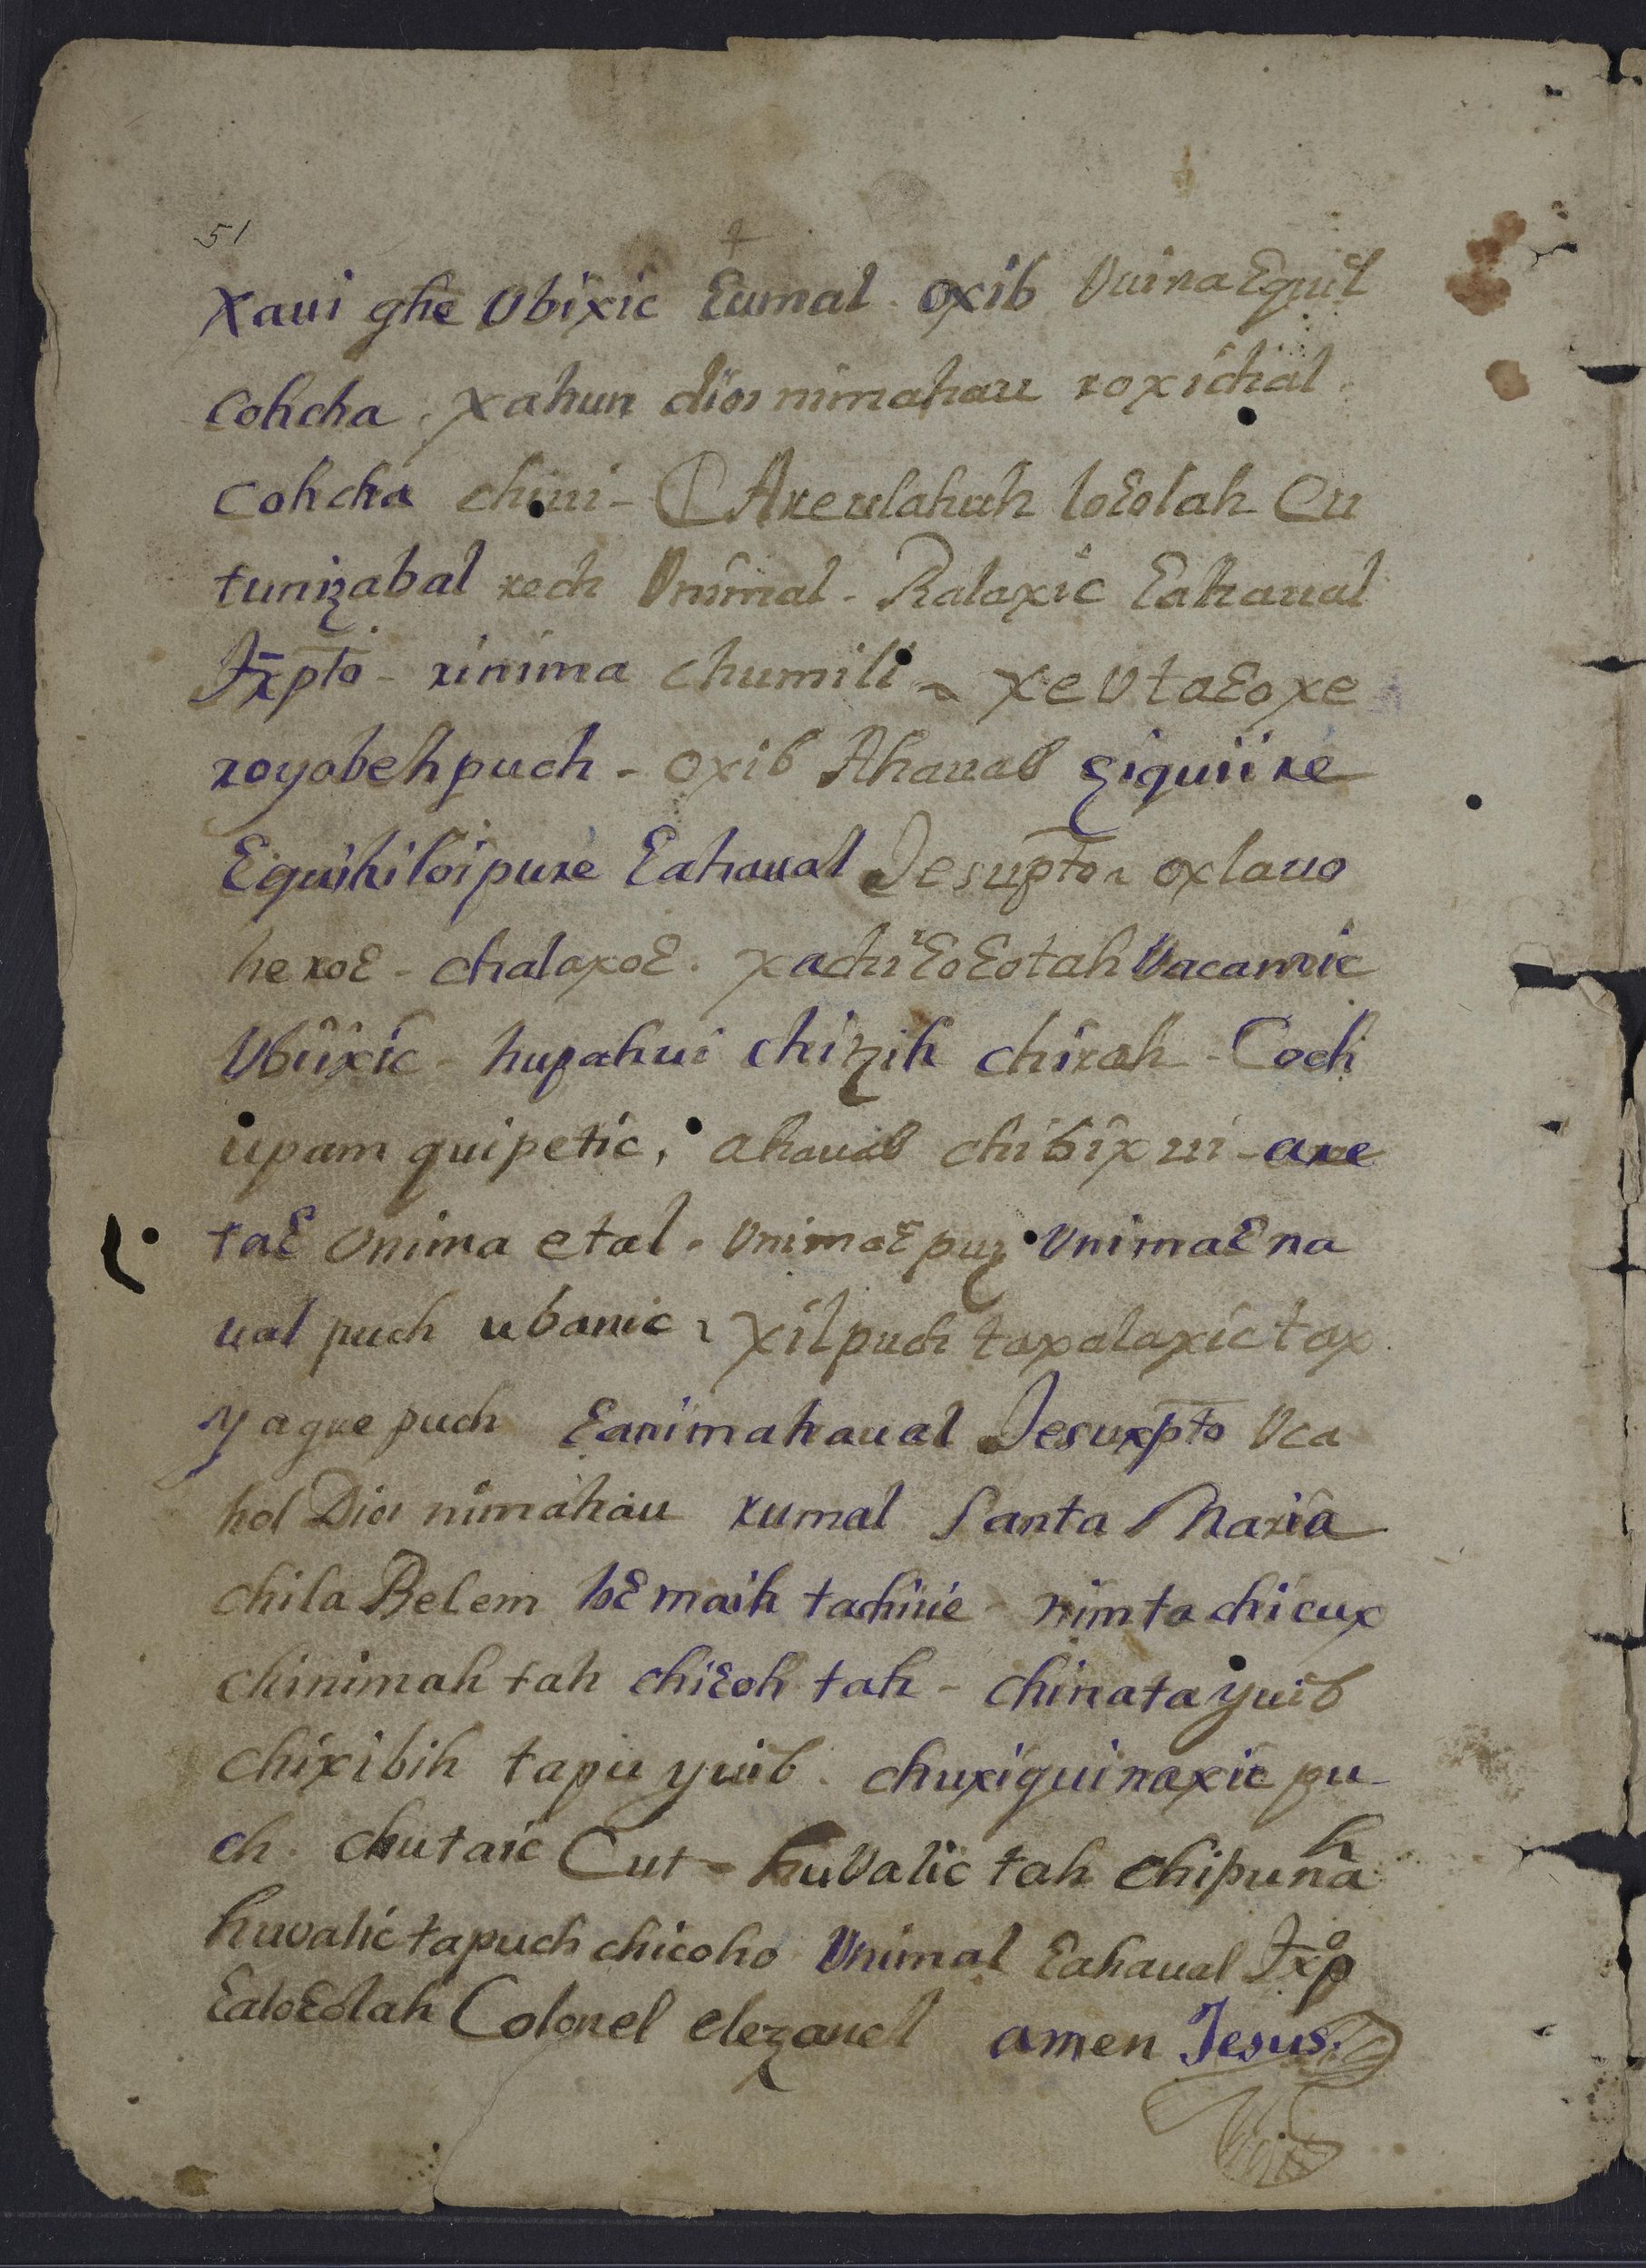 51
Xaui ghe Vbixic Ɛumal. oxib Vuina Ɛquil
cohcha. xahun dios nimahau roxichal.
cohcha chiui - Areulahuh loƐolah Cu
tunizabal rech Vnimal - Ralaxic Ɛahaual
Jxpto - rinima chumili ~ xe VtaƐoxe
royobeh puch - oxib Ahauab ziquiire
Ɛquihiloi pure Ɛahaual Jesupto ~ oxlauo
heroƐ - chalaxoƐ. xachi ƐoƐotah Vacamic
Vbiixic - hupahui chizih chirah - Coch
upam quipetic, ahauab chibixui - are
taƐ Vnima etal. VnimaƐ puz VnimaƐ na
ual puch ubanic ~ xilpuch taxalaxic tax
yaque puch Ɛanimahaual Jesuxpto Vca
hol Dios nimahau rumal Santa Maria
chila Belem loƐmaih tachiue - nimta chicux
chinimah tah chiƐoh tah - chinata yuib
chixibih tapu yuib. chuxiquinaxic pu
ch. chutaic Cut - huValic tah chipuna h
huvalic tapuch chicoho Vnimal Ɛahaual Jxpo
ƐaloƐolah Colonel elezanel amen Jesus.